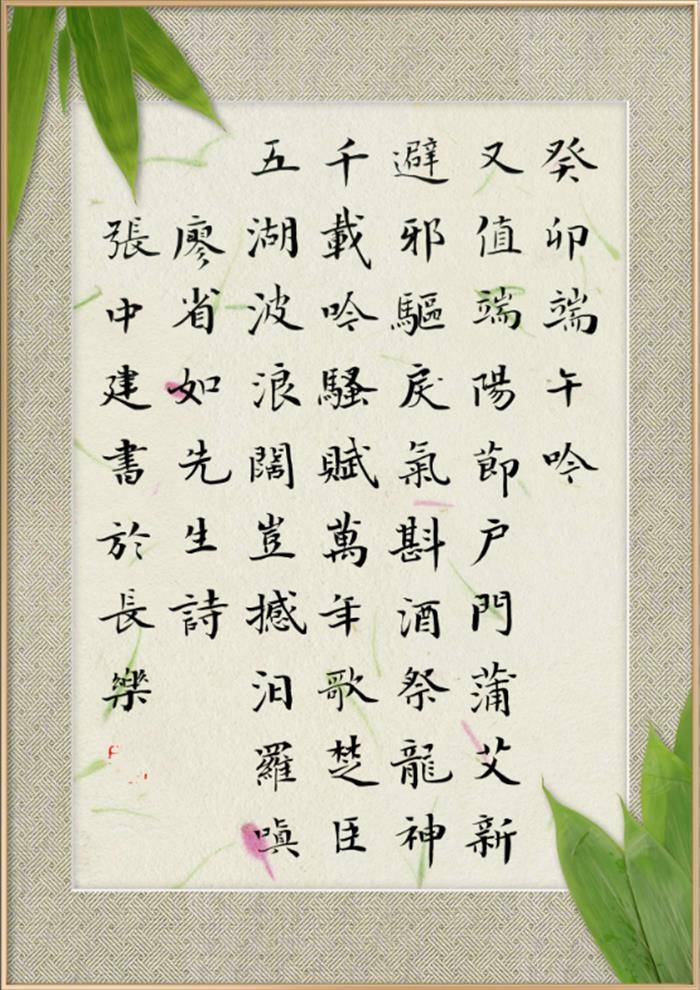 癸卯端午吟
又值端陽節户門蒲艾新
避邪驅戾氣斟酒祭龍神
千載吟騷賦萬年歌楚臣
五湖波浪闊豈撼汨羅嗔
廖省如先生詩
張中建書於長樂